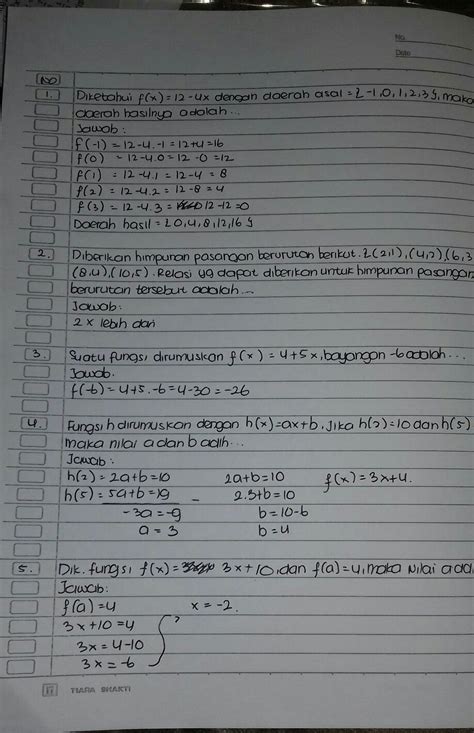 No.
Date
No
1. Diketahui f(x)=12-4x dengan daerah asal = {-1,0,1,2,3}, maka
daerah hasilnya adalah...
Jawab:
f(-1) = 12-4.-1 = 12+4 = 16
f(0) = 12-4.0 = 12-0 = 12
f(1) = 12-4.1 = 12-4 = 8
f(2) = 12-4.2 = 12-8 = 4
f(3) = 12-4.3 = 12-12 = 0
Daerah hasil = {0,4,8,12,16}
2. Diberikan himpunan pasangan berurutan berikut. {(2,1),(4,2),(6,3
(8,4),(10,5). Relasi yg dapat diberikan untuk himpunan pasangan
berurutan tersebut adalah...
Jawab:
2x lebih dari
3. Suatu fungsi dirumuskan f(x) = 4+5x, bayangan -6 adalah...
Jawab.
f(-6) = 4+5.-6 = 4-30 = -26
4. Fungsi h dirumuskan dengan h(x)=ax+b, Jika h(2)=10 dan h(5)
maka nilai a dan b adlh...
Jawab:
h(2) = 2a+b = 10 2a+b = 10 f(x) = 3x+4.
h(5) = 5a+b = 19 - 2.3+b = 10
-3a = -9 b = 10-6
a = 3 b = 4
5. Dik. fungsi f(x) = 3x+10, dan f(a)=4, maka nilai a
Jawab:
f(a) = 4 x = -2.
3x+10 = 4
3x = 4-10
3x = -6
TIARA BHAKTI